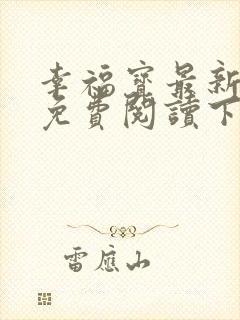 幸福寶最新
免費閱讀下
雷應山